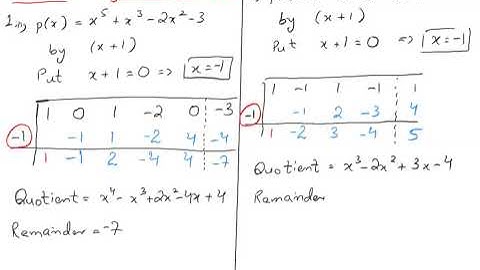 1. p(x) = x⁵ + x³ - 2x² - 3
by (x+1)
Put x+1=0 => x=-1
1 0 1 -2 0 -3
-1 -1 1 -2 4 -4
1 -1 2 -4 4 -7
Quotient = x⁴ - x³ + 2x² - 4x + 4
Remainder = -7
by (x+1)
Put x+1=0 => x=-1
1 -1 1 -1 1
-1 -1 2 -3 4
1 -2 3 -4 5
Quotient = x³ - 2x² + 3x - 4
Remainder